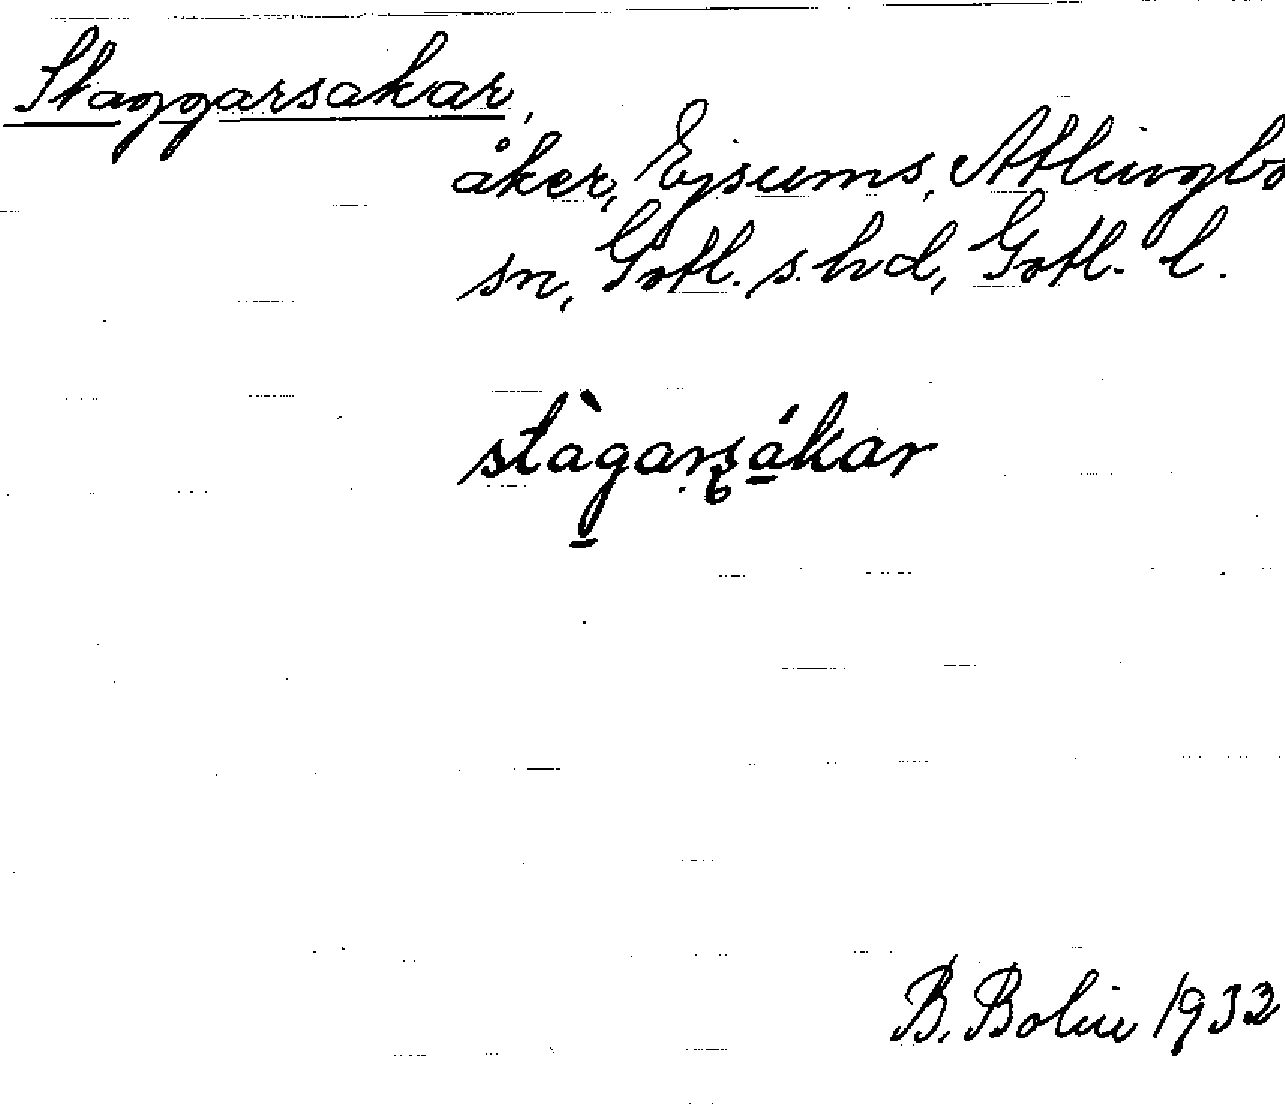 Staggarsakar,
åker, Ejsums, Atlingbo
sn, Gotl. s. hd, Gotl. l.
stàgarsákar
B. Bolin 1932